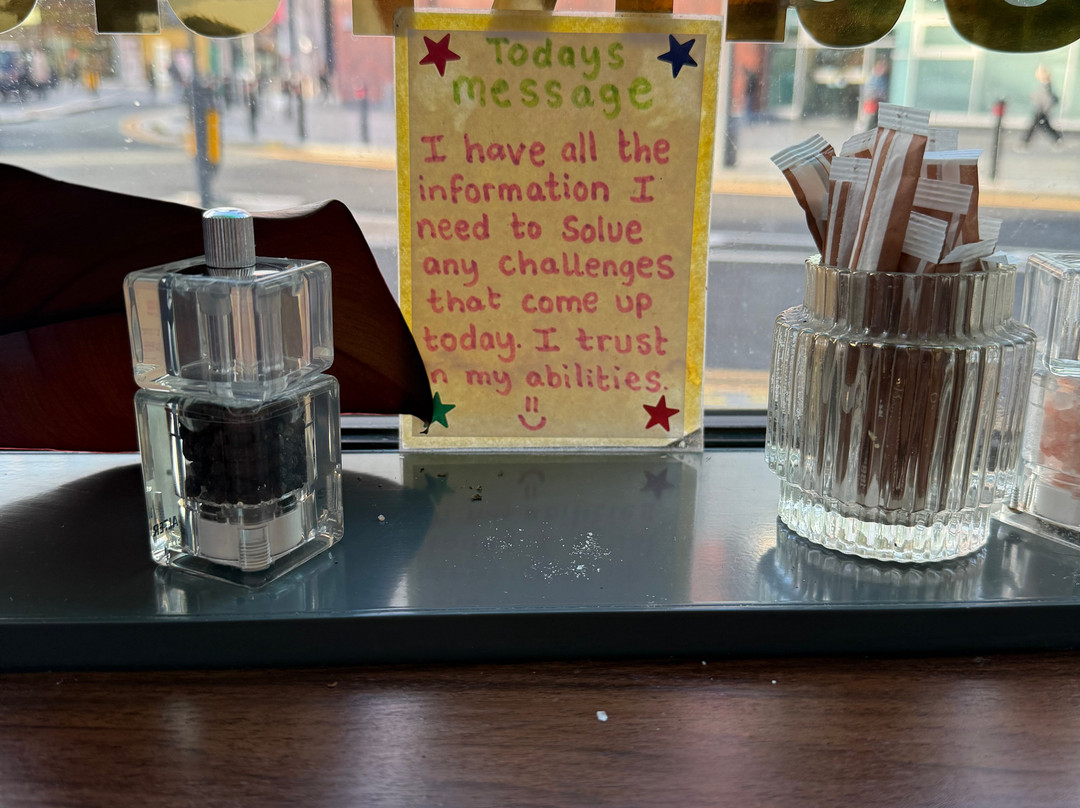 Todays
message
I have all the
information I
need to Solve
any challenges
that come up
today. I trust
n my abilities.